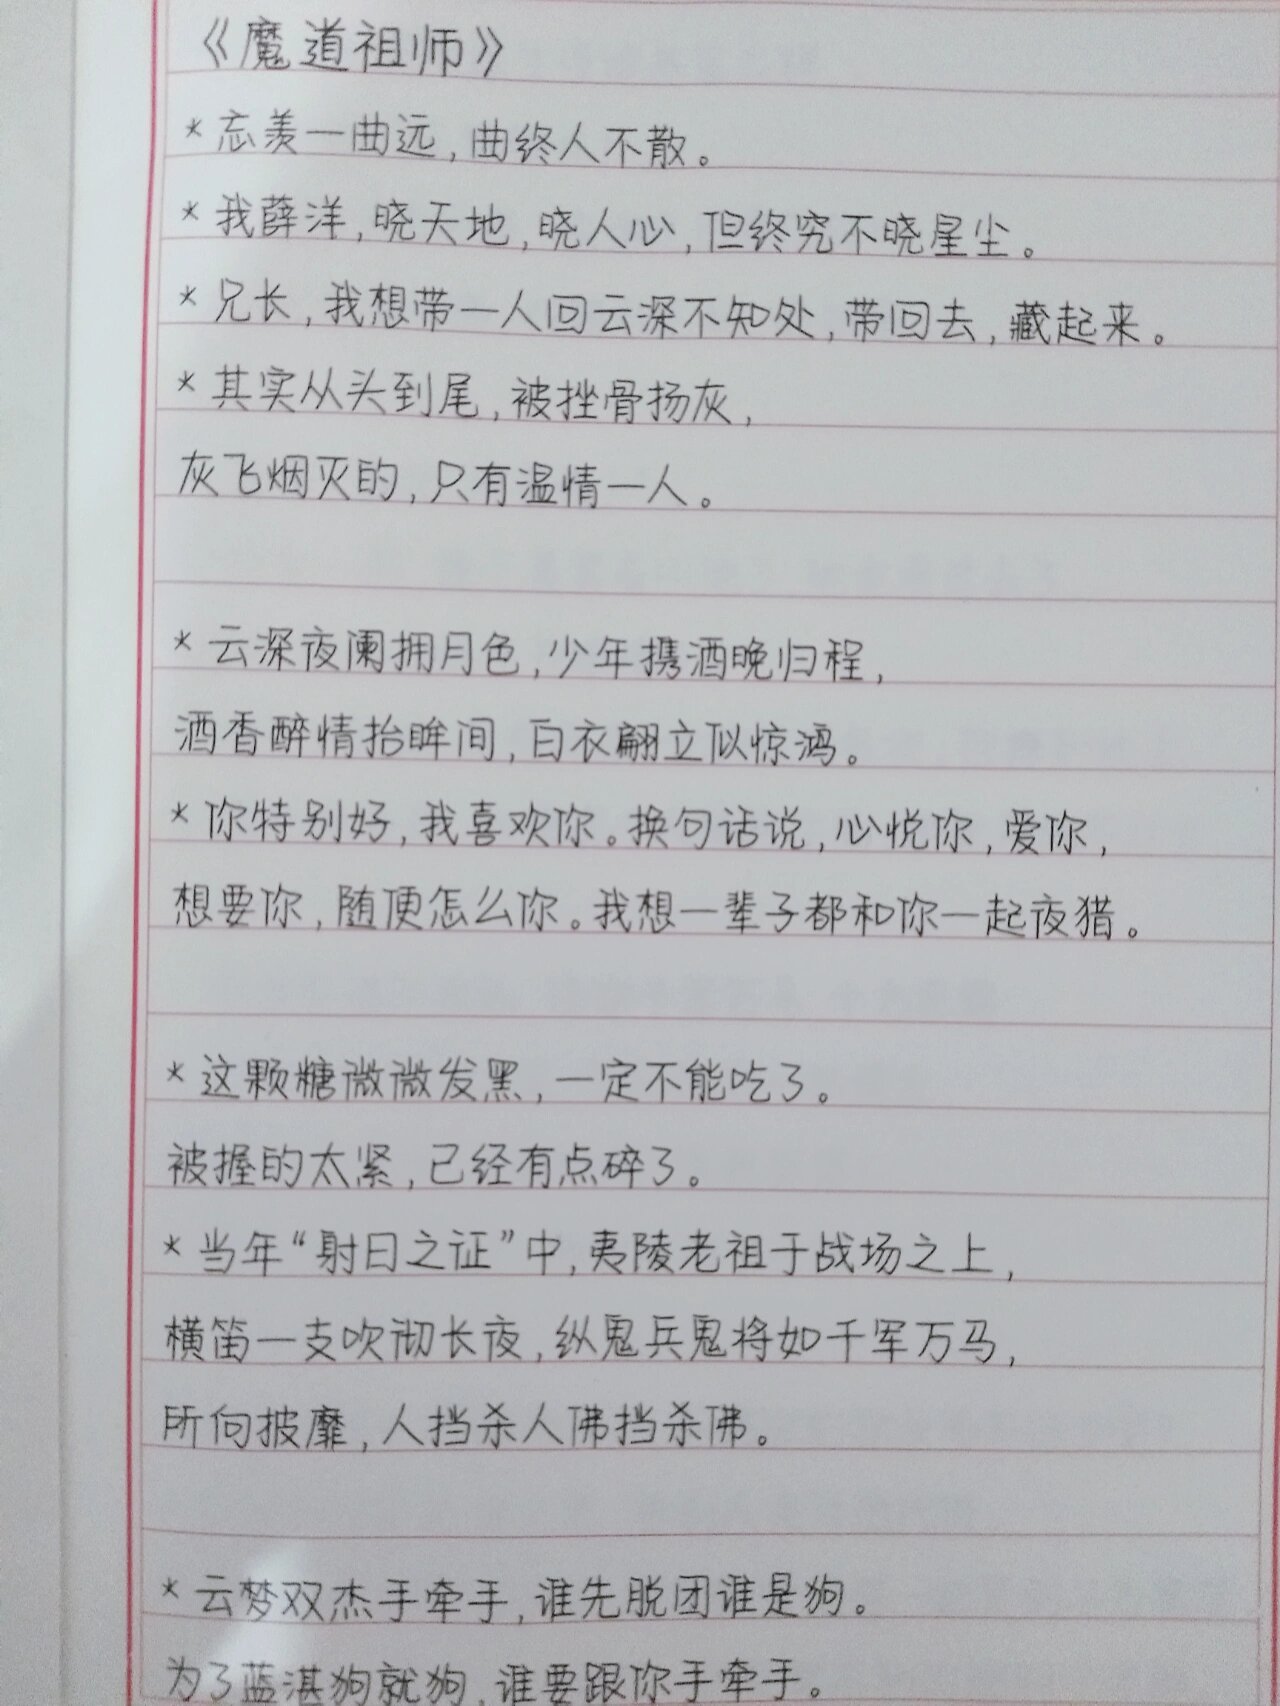 《魔道祖师》
*忘羡一曲远,曲终人不散。
*我薛洋,晓天地,晓人心,但终究不晓星尘。
*兄长,我想带一人回云深不知处,带回去,藏起来。
*其实从头到尾,被挫骨扬灰,
灰飞烟灭的,只有温情一人。
*云深夜阑拥月色,少年携酒晚归程,
酒香醉情抬眸间,白衣翩立似惊鸿。
*你特别好,我喜欢你。换句话说,心悦你,爱你,
想要你,随便怎么你。我想一辈子都和你一起夜猎。
*这颗糖微微发黑,一定不能吃了。
被握的太紧,已经有点碎了。
*当年“射日之证”中,夷陵老祖于战场之上,
横笛一支吹彻长夜,纵鬼兵鬼将如千军万马,
所向披靡,人挡杀人佛挡杀佛。
*云梦双杰手牵手,谁先脱团谁是狗。
为了蓝湛狗就狗,谁要跟你手牵手。